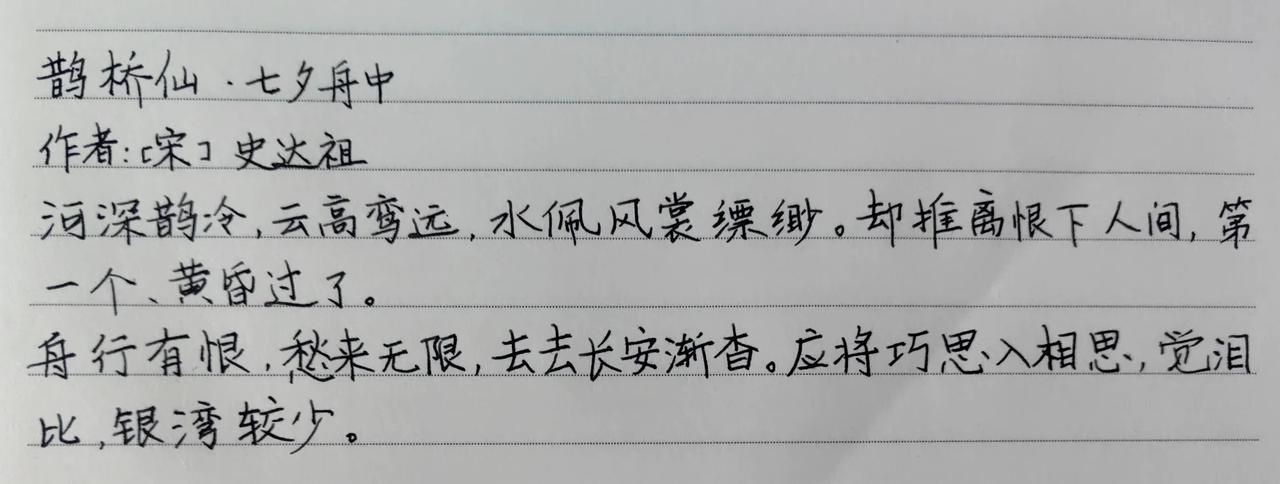 鹊桥仙·七夕舟中
作者:[宋]史达祖
河深鹊冷,云高鸾远,水佩风裳缥缈。却推离恨下人间,第
一个、黄昏过了。
舟行有恨,愁来无限,去去长安渐杳。应将巧思入相思,觉泪
比,银湾较少。